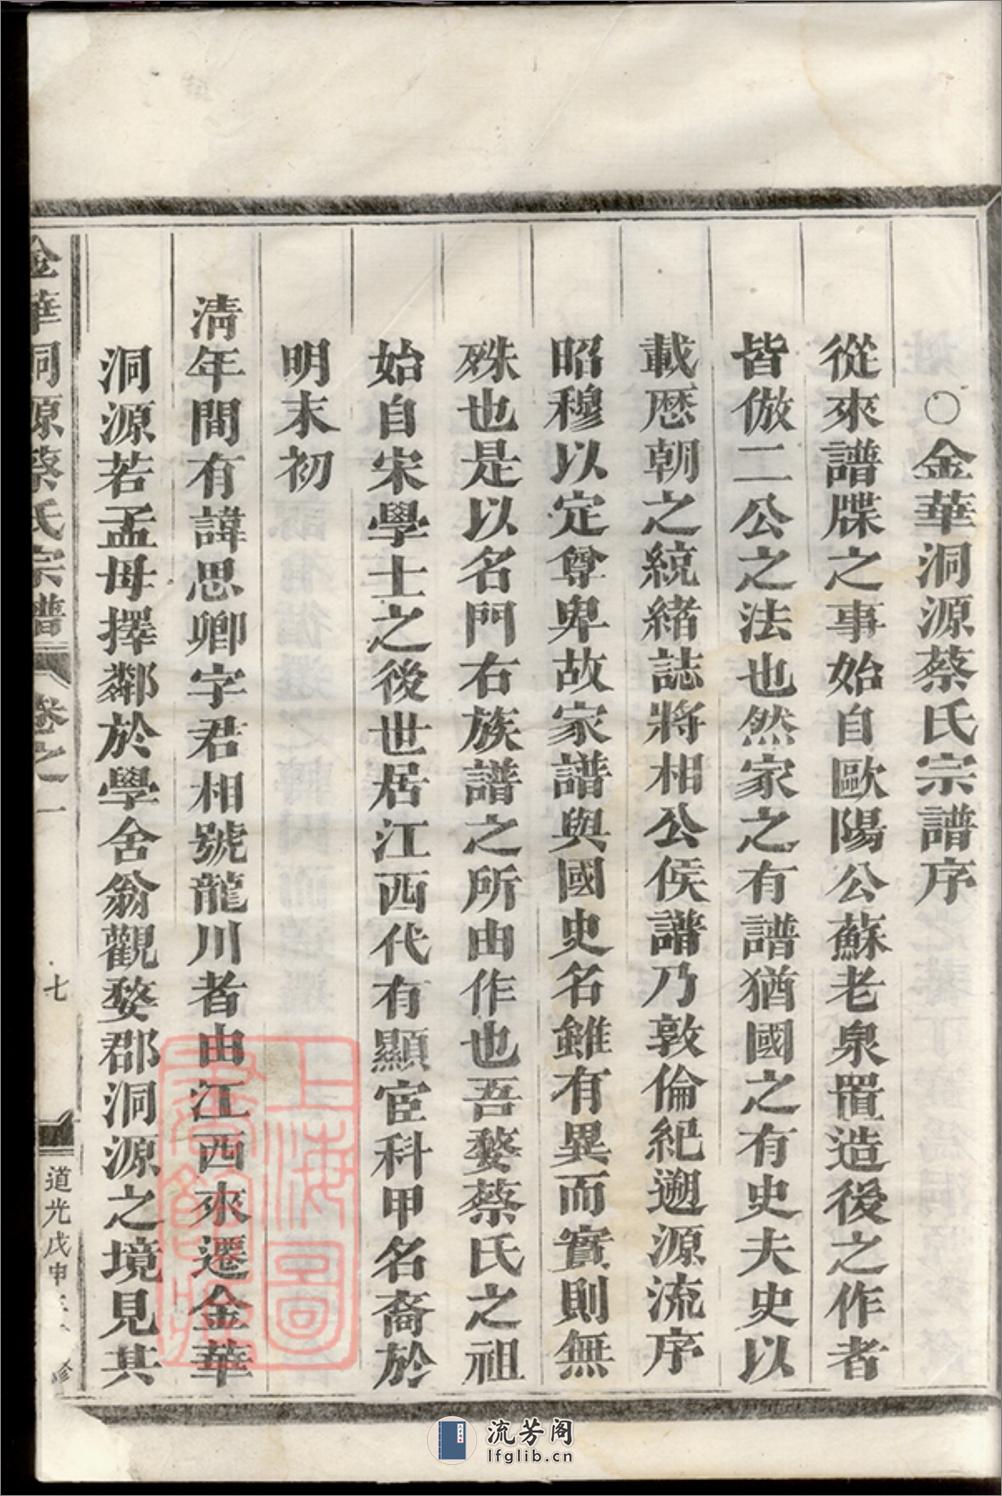 ○金華洞源蔡氏宗譜序
從來譜牒之事始自歐陽公蘇老泉置造後之作者
皆倣二公之法也然家之有譜猶國之有史夫史以
載歷朝之統緒誌將相公侯譜乃敦倫紀遡源流序
昭穆以定尊卑故家譜與國史名雖有異而實則無
殊也是以名門右族譜之所由作也吾婺蔡氏之祖
始自宋學士之後世居江西代有顯宦科甲名裔於
明末初
清年間有諱思卿字君相號龍川者由江西來遷金華
洞源若孟母擇鄰於學舍翁觀婺郡洞源之境見其
金華洞源蔡氏宗譜 卷之一 七 道光戊申 修
上海圖書館藏
流芳阁
lfglib.cn